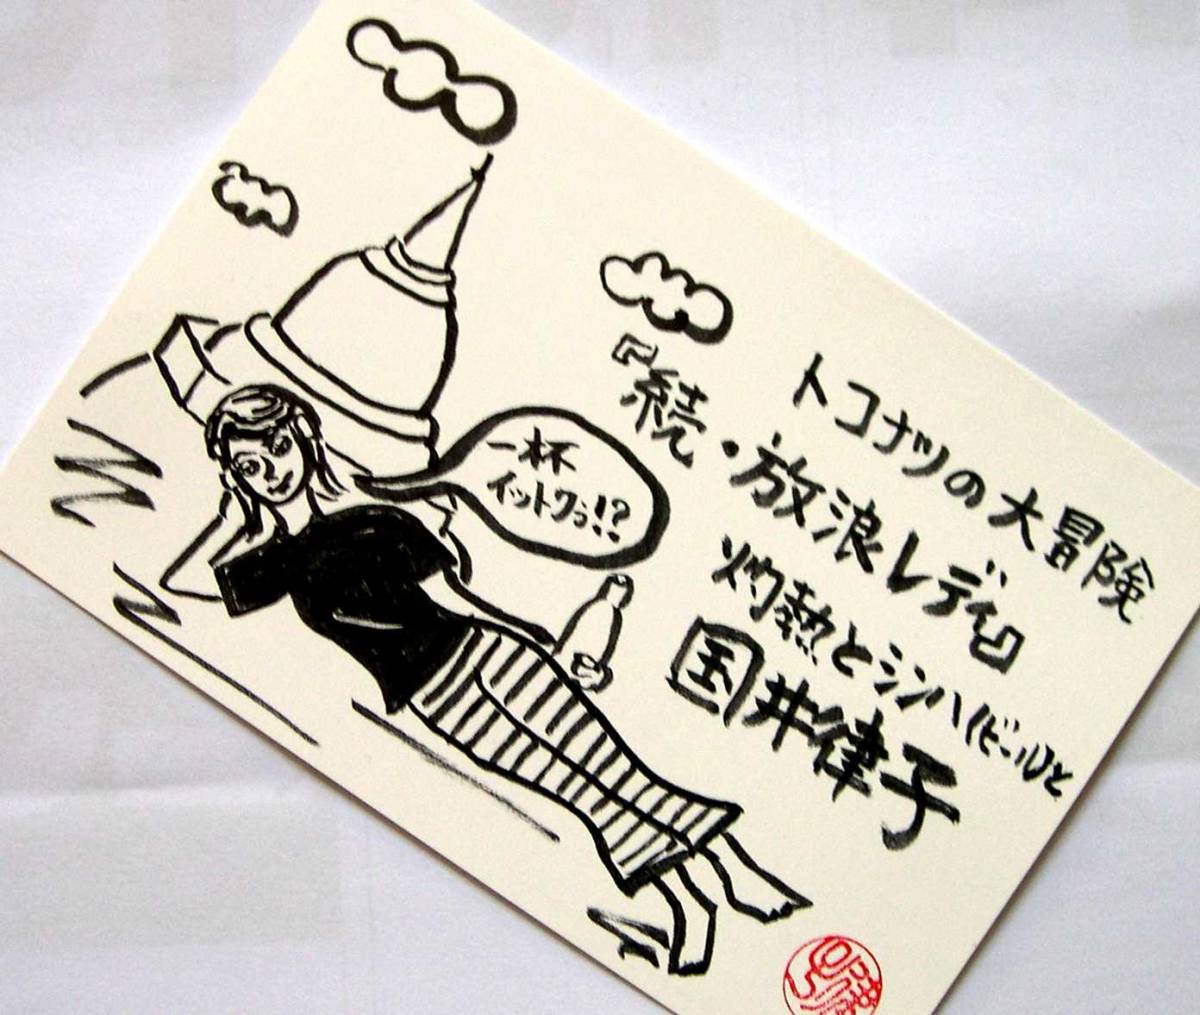 トコナツの大冒険
『続・放浪レディ』
灼熱とシンハ(ビール)と
国井律子
一杯
イットクぅ!?